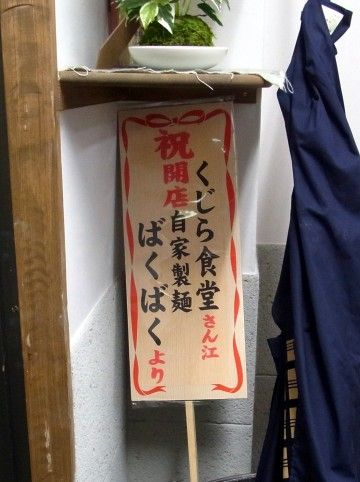 くじら食堂さん江
祝開店
自家製麺
ばくばくより